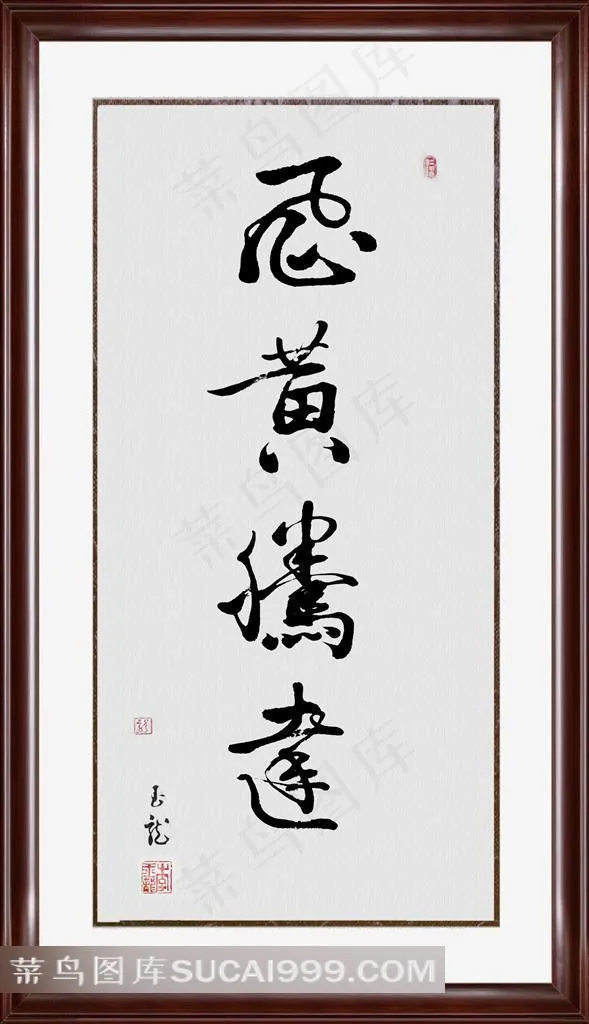 飛黃騰達
玉龍
菜鸟图库
菜鸟图库
菜鸟图库
菜鸟图库SUCAI999.COM